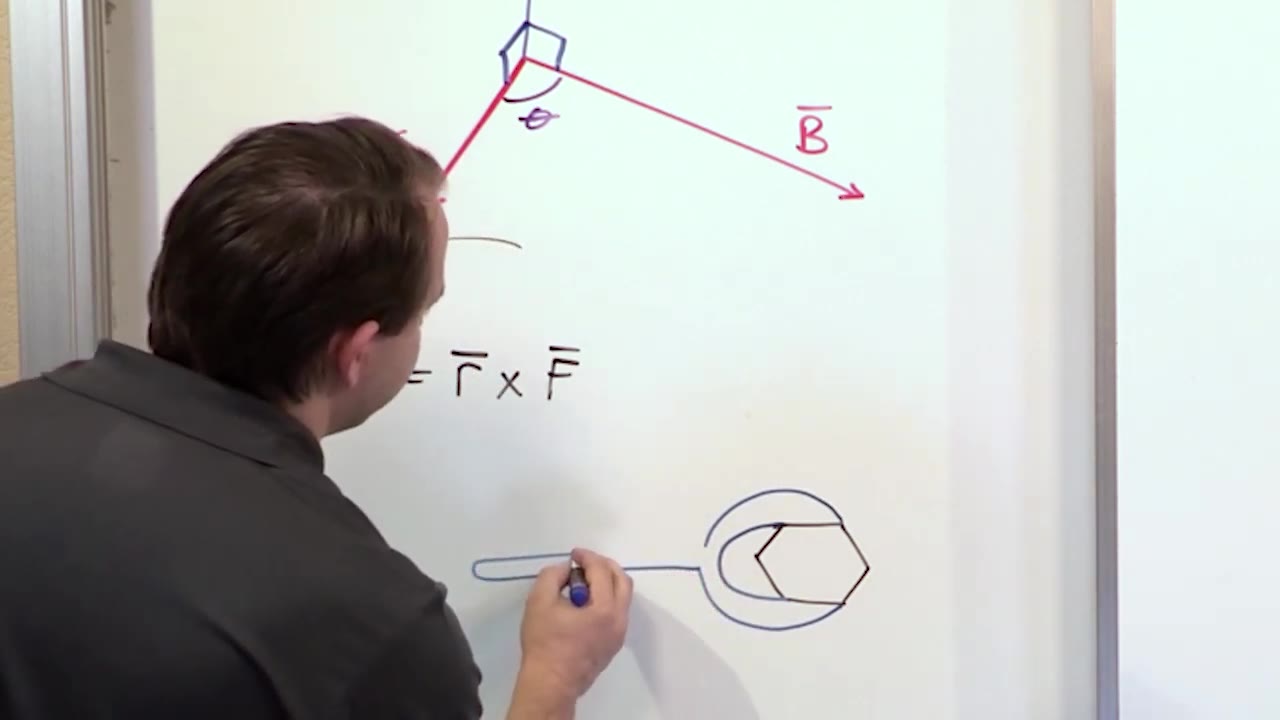 θ
B̅
= r̅ x F̅